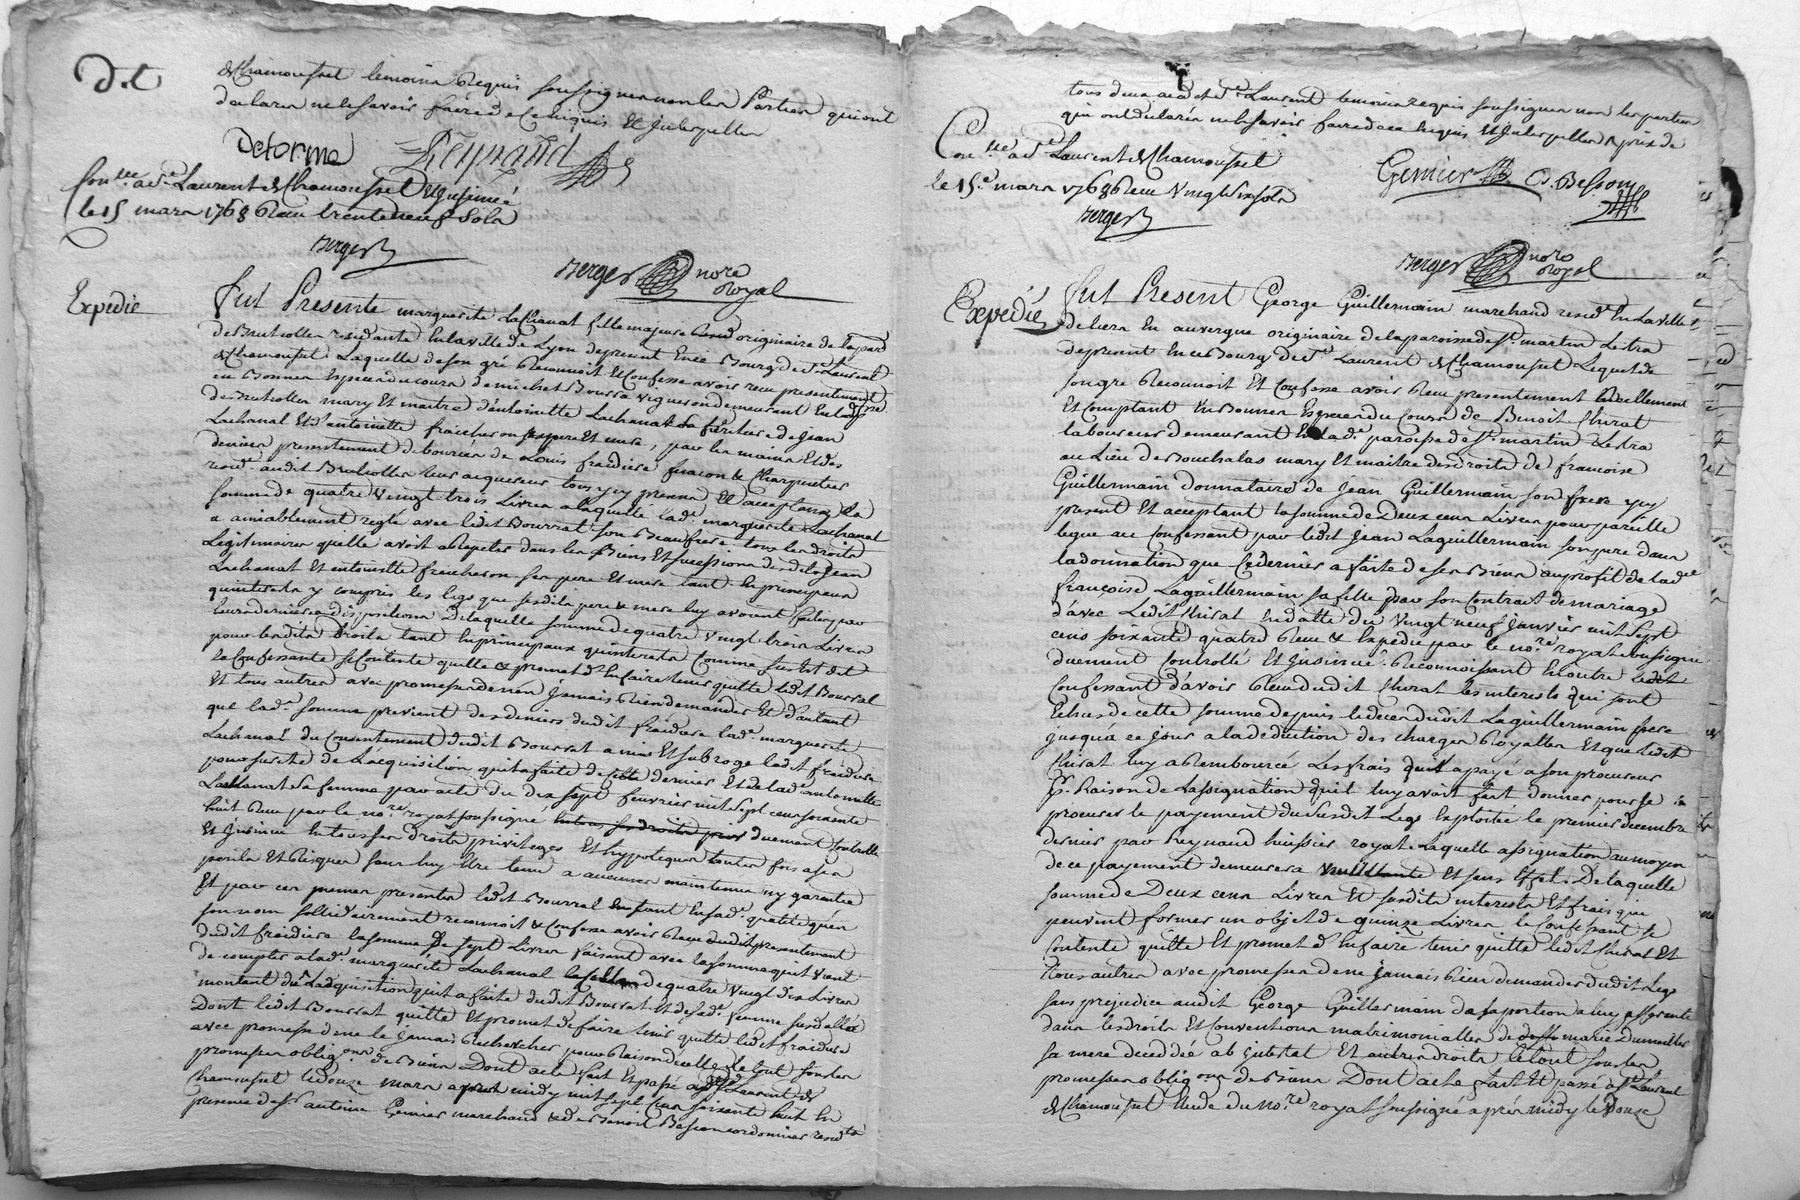 D.t
de Chamousset temoins Requis soussignés non les Parties qui ont
declarés ne le scavoir faire de ce Enquis Et Interpellés
Delorme Reynaud
Con.llé a S.t Laurent de Chamousset Et insinué
le 15 mars 1768 Reçu trente neuf sols
Berger
Berger nore Royal
Expedié
fut Presente marguerite Lachanal fille majeure originaire de la par.sse
de Brullolles residante En la ville de Lyon de present En ce Bourg de S.t Laurent
de Chamousset Laquelle de son gré Reconnoit Et Confesse avoir reçu presentement
en Bonnes Especes du cours de michel Bourrat vigneron demeurant En lad. par.sse
de Brullolles mary Et maitre d'antoinette Lachanal heritiere de Jean
Lachanal Et d'antoinette fraicheron ses pere Et mere, par les mains Et des
deniers presentement deboursés de Louis fraidiere maçon & Charpentier
resid.t audit Brullolles leur acquereur tous icy presens Et acceptans La
somme de quatre vingt trois Livres a laquelle lad.e marguerite Lachanal
a amiablement reglé avec ledit Bourrat son Beaufrere tous les droits
Legitimaires quelle avoit a Repeter dans les Biens Et successions desdits Jean
Lachanal Et antoinette fraicheron ses pere Et mere tant En principaux
qu'interets y compris les legs que sesdits pere & mere luy avoient faits par
leurs dernieres dispositions De laquelle somme de quatre vingt trois Livres
pour lesdits Droits tant En principaux qu'interets Comme sus est dit
la Confessante se Contente quitte & promet d'En faire tenir quitte ledit Bourrat
Et tous autres avec promesse de n'en Jamais Rien demander Et d'autant
que lad.e somme provient des deniers dudit fraidiere lad.e marguerite
Lachanal du Consentement dudit Bourrat a mis Et subrogé ledit fraidiere
pour sureté de L'acquisition qu'il a faite de ce dernier Et de lad.e antoinette
Lachanal sa femme par acte du dix sept fevrier mil sept cens soixante
huit Reçu par le no.re royal soussigné duement controllé
Et Insinué En tous ses droits privileges Et hypoteques toutes fois a ses
perils Et Risques sans luy Etre tenu a aucunes maintenue ny garantie
Et par ces memes presentes ledit Bourrat tant En sad.e qualité qu'en
son nom sollidairement reconnoit & Confesse avoir Reçu dudit presentement
dudit fraidiere la somme de sept Livres faisant avec la somme qu'il vient
de compter a lad.e marguerite Lachanal celle de quatre vingt dix Livres
montant de L'adquisition qu'il a faite dudit Bourrat Et de sad.e femme susdattée
Dont ledit Bourrat quitte Et promet de faire tenir quitte ledit fraidiere
avec promesse de ne le Jamais Rechercher pour Raison d'icelle le tout sous les
promesses oblig.ons de Biens Dont acte fait Et passé aud. S.t Laurent de
Chamousset le douze mars apres midy mil sept cens soixante huit En
presence de s.r antoine Genier marchand & de Benoit Besson cordonnier resid.ts
tous deux aud. S.t Laurent temoins requis soussignés non les parties
qui ont declarés ne le scavoir faire de ce Enquis Et Interpellés
Con.llé a S.t Laurent de Chamousset
le 15.e mars 1768 Reçu Vingt six sols
Genier C. Besson
Berger
Berger nore Royal
Expedié
fut Present George Guillermain marchand resid.t En la ville
de Liera En auvergne originaire de la paroisse de S.t martin Lestra
de present En ce Bourg de S.t Laurent de Chamousset Lequel de
son gré Reconnoit Et Confesse avoir Reçu presentement Reellement
Et Comptant En Bonnes Especes du Cours de Benoit Thivat
laboureur demeurant En lad.e paroisse de S.t martin Lestra
au Lieu de Bouchalas mary Et maitre des droits de francoise
Guillermain donnataire de Jean Guillermain son frere icy
present Et acceptant la somme de Deux cens Livres pour pareille
legué au Confessant par ledit Jean Laguillermain son pere dans
la donnation que Ce dernier a faite de ses Biens au profit de lad.e
françoise Laguillermain sa fille par son Contract de mariage
d'avec Ledit Thivat En datte du Vingt neuf Janvier mil sept
cens soixante quatre Reçu & Expedié par le no.re royal soussigné
duement Controllé Et Insinué. Reconnoissant En outre ledit
Confessant d'avoir Reçu dudit Thivat les interets qui sont
Echus de cette somme depuis le deces dudit Laguillermain pere
jusqua ce Jour a la deduction des charges Royalles Et que Ledit
Thivat luy a Remboursé Les frais qu'il a payé a son procureur
P.r Raison de L'assignation qu'il luy avoit fait donner pour se
procurer le payement du susdit Legs Exploitée le premier decembre
dernier par Reynaud huissier royal. Laquelle assignation au moyen
de ce payement demeurera Et sans effet. De laquelle
somme de Deux cens Livres Et susdits interets Et frais qui
peuvent former un objet de quinze Livres le Confessant se
Contente quitte Et promet d'En faire tenir quitte ledit Thivat Et
Tous autres avec promesse de ne Jamais Rien demander dudit Legs
sans prejudice audit George Guillermain de sa portion a luy afferante
dans les droits Et Conventions matrimonialles de marie Dumollard
sa mere decedée ab intestat Et autres droits le tout sous les
promesses oblig.ons de Biens Dont acte fait Et passé a S.t Laurent
de Chamousset Etude du No.re royal soussigné après midy le Douze